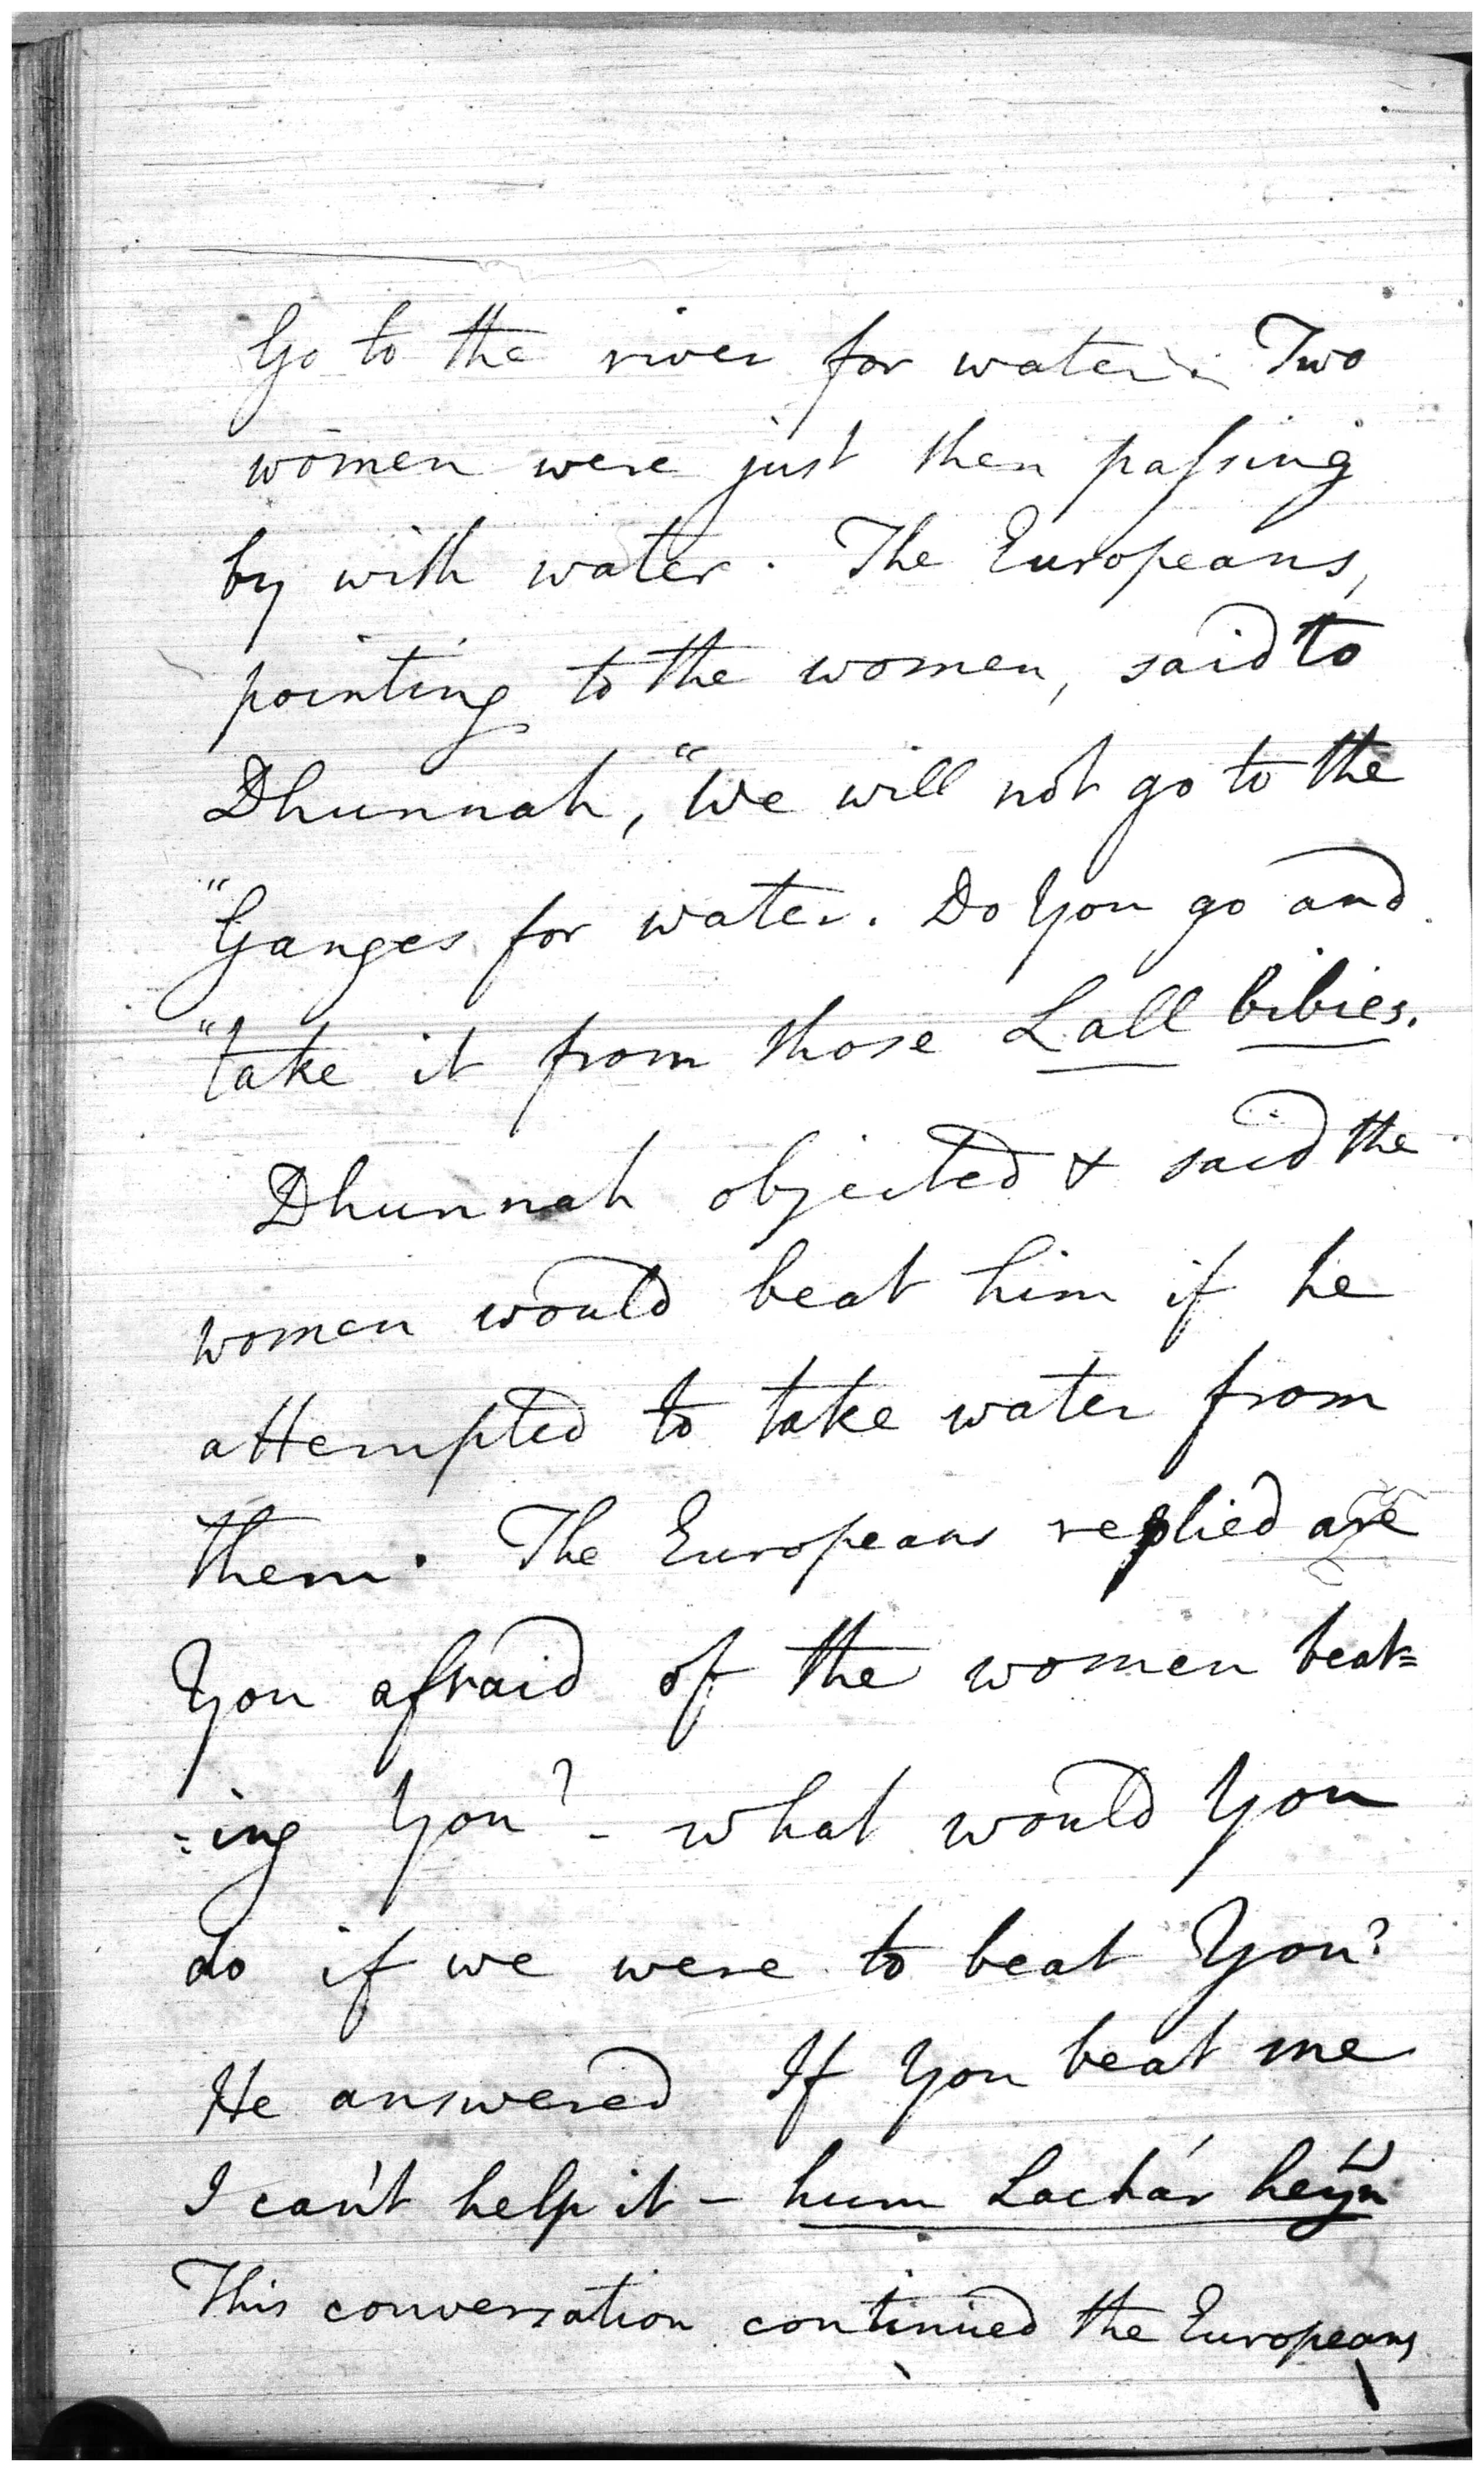 Go to the river for water. Two
women were just then passing
by with water. The Europeans,
pointing to the women, said to
Dhunnah, "We will not go to the
"Ganges for water. Do You go and
"take it from those Lall bibies.
Dhunnah objected & said the
women would beat him if he
attempted to take water from
them. The Europeans replied are
You afraid of the women beat=
=ing You? - what would You
do if we were to beat You?
He answered If You beat me
I can't help it - hum Lachár heyn
This conversation continued the Europeans